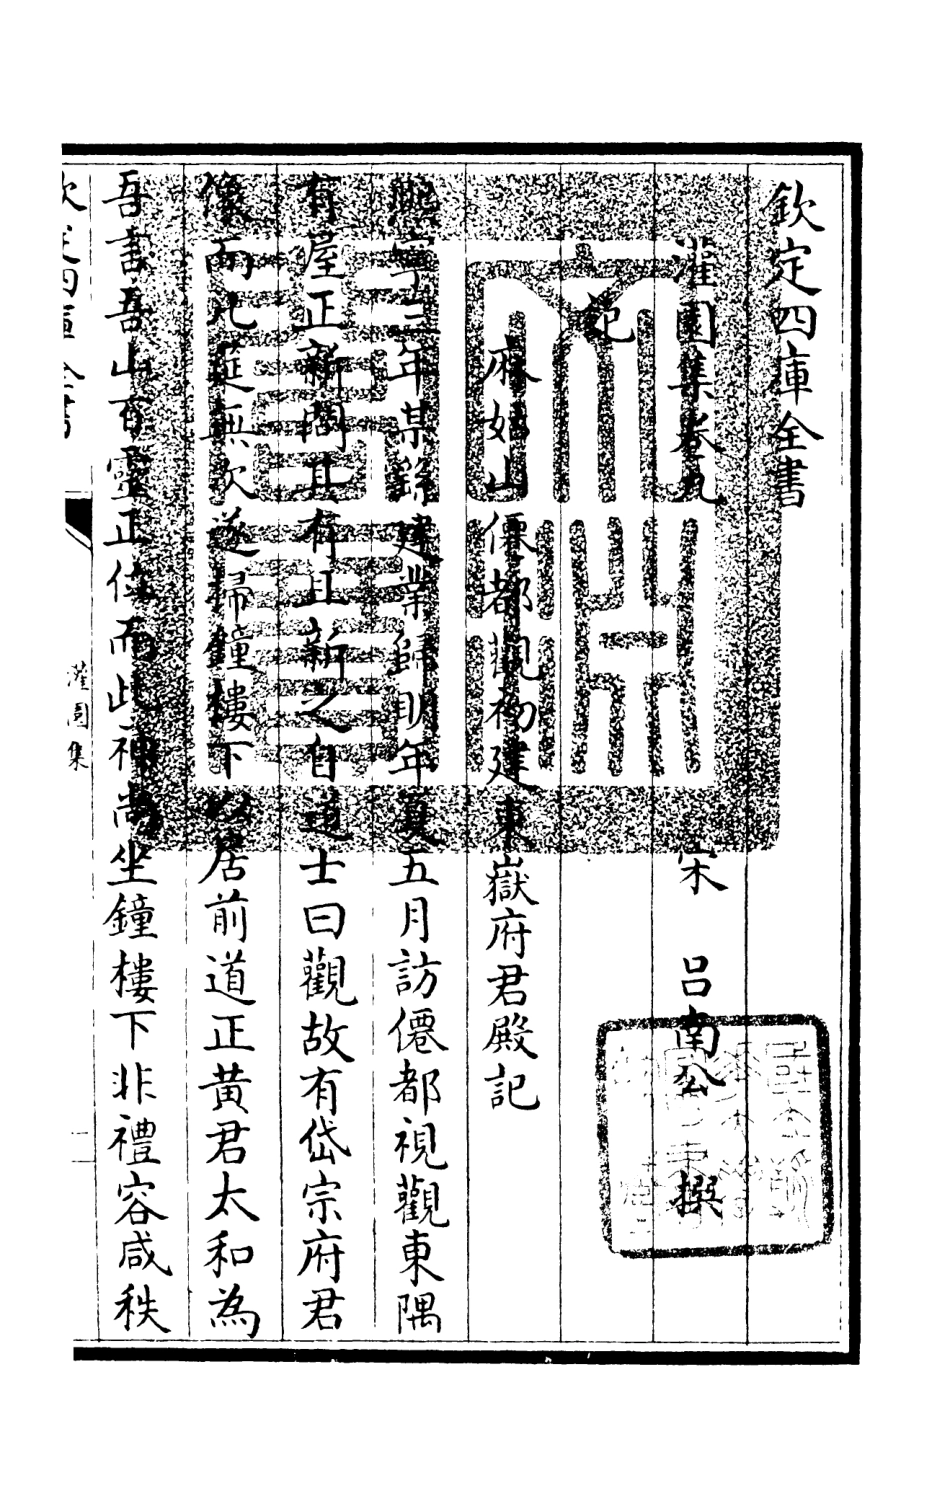 欽定四庫全書
灌園集卷九
宋 呂南公 撰
記
麻姑山僊都觀初建東嶽府君殿記
熙寧三年某繇建業歸明年夏五月訪僊都視觀東隅
有屋正新問其有且新之自道士曰觀故有岱宗府君
像而几筵無次遂掃鐘樓下以居前道正黃君太和為
吾言吾山百靈正位而此神尚坐鐘樓下非禮容咸秩
欽定四庫全書
灌園集
一